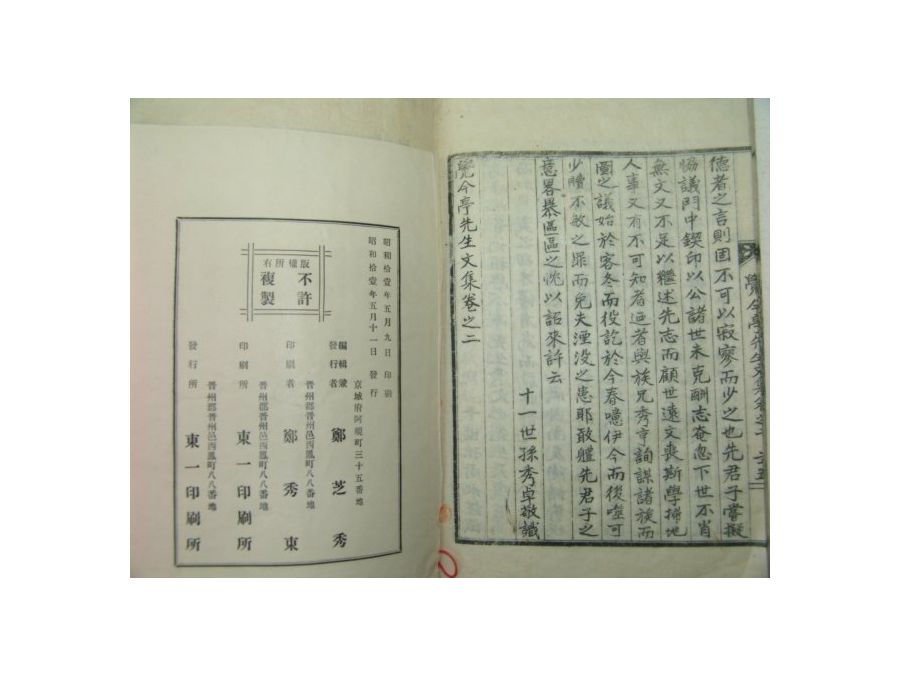 德者之言則固不可以寂寥而少之也先君子嘗擬
協議門中鍥印以公諸世未克酬志奄忽下世不肖
無文又不足以繼述先志而顧世遠文喪斯學掃地
人事又有不可知者迺者與族兄秀亨詢謀諸族而
圖之議始於客冬而役訖於今春噫伊今而後豈可
少贖不敏之罪而免夫湮没之患耶敢軆先君子之
意畧暴區區之忱以詔來許云
十一世孫秀卓敬識
覺今亭先生文集卷之二
覺今亭先生文集卷之二
昭和拾壹年五月九日 印刷
昭和拾壹年五月十一日 發行
版權所有
不許
複製
京城府阿峴町三十五番地
編輯兼發行者 鄭芝秀
晋州郡晋州邑西鳳町八八番地
印刷者 鄭秀東
晋州郡晋州邑西鳳町八八番地
印刷所 東一印刷所
晋州郡晋州邑西鳳町八八番地
發行所 東一印刷所